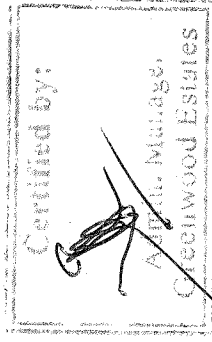 Certified by:
Admin. Manager
Greenwood Estates